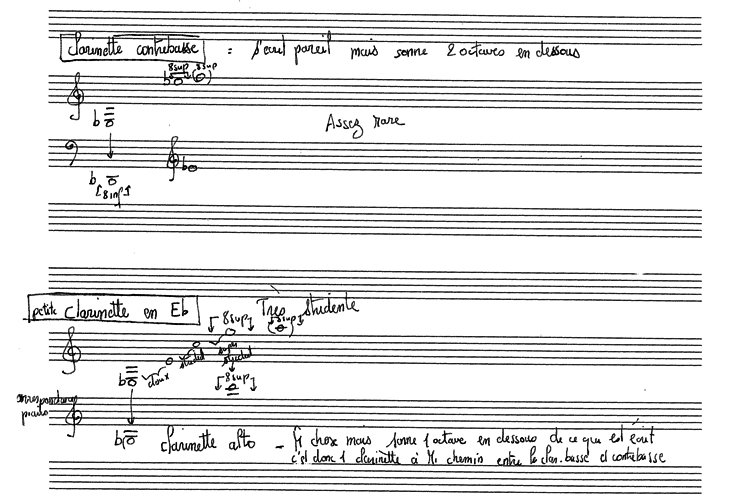 Clarinette contrebasse : s'écrit pareil mais sonne 2 octaves en dessous
8sup 8sup
Assez rare
[8inf]
petite clarinette en Eb Très stridente
[8sup] [8sup]
doux strident super strident
[8sup]
correspondance
piano
clarinette alto - chose mais sonne 1 octave en dessous de ce qui est écrit
c'est donc 1 clarinette à Mi chemin entre la clar. basse et contrebasse